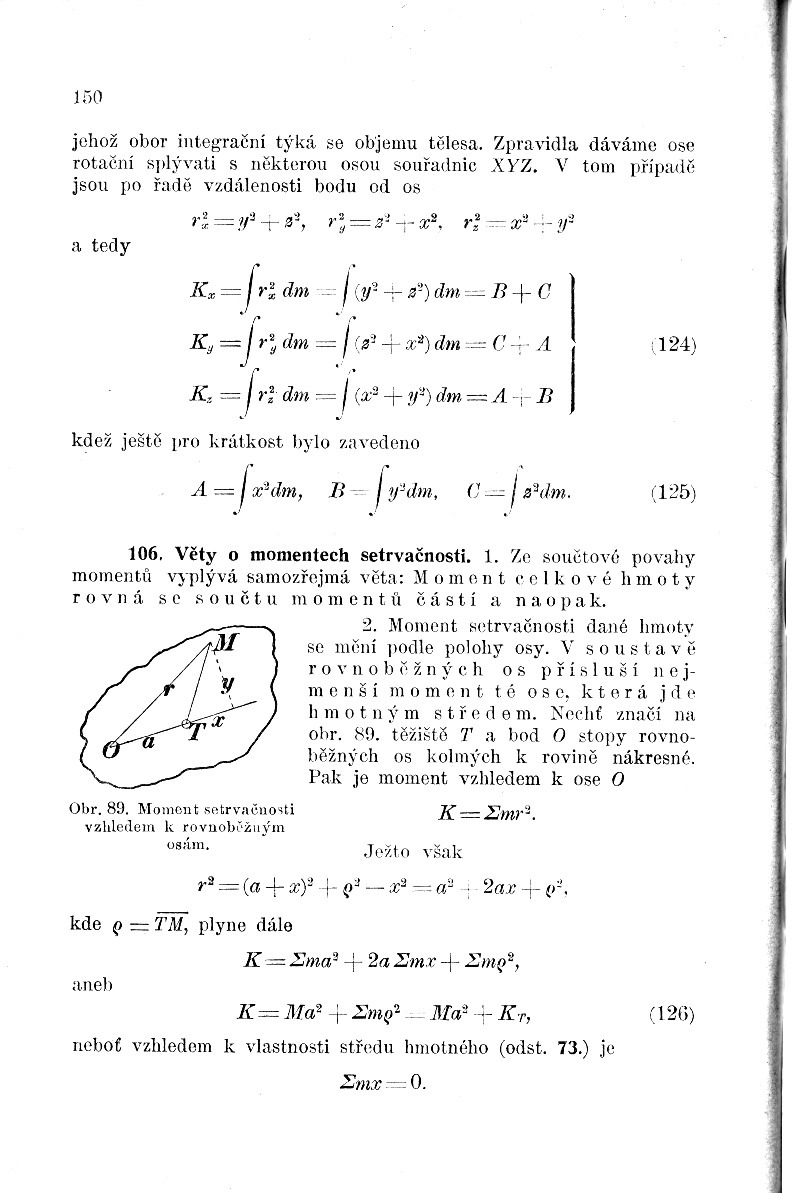 150
jehož obor integrační týká se objemu tělesa. Zpravidla dáváme ose
rotační splývati s některou osou souřadnic XYZ. V tom případě
jsou po řadě vzdálenosti bodu od os
r²ₓ = y² + z², r²_y = z² + x², r²_z = x² + y²
a tedy
Kₓ = ∫ r²ₓ dm = ∫ (y² + z²) dm = B + C
K_y = ∫ r²_y dm = ∫ (z² + x²) dm = C + A (124)
K_z = ∫ r²_z dm = ∫ (x² + y²) dm = A + B
kdež ještě pro krátkost bylo zavedeno
A = ∫ x²dm, B = ∫ y²dm, C = ∫ z²dm. (125)
106. Věty o momentech setrvačnosti. 1. Ze součtové povahy
momentů vyplývá samozřejmá věta: Moment celkové hmoty
rovná se součtu momentů částí a naopak.
2. Moment setrvačnosti dané hmoty
se mění podle polohy osy. V soustavě
rovnoběžných os přísluší nej-
menší moment té ose, která jde
hmotným středem. Nechť značí na
obr. 89. těžiště T a bod O stopy rovno-
běžných os kolmých k rovině nákresné.
Pak je moment vzhledem k ose O
M
r
y
x
T
a
O
Obr. 89. Moment setrvačnosti
vzhledem k rovnoběžným
osám.
K = Σmr².
Ježto však
r² = (a + x)² + ϱ² — x² = a² + 2ax + ϱ²,
kde ϱ = T̅M̅, plyne dále
K = Σma² + 2a Σmx + Σmϱ²,
aneb
K = Ma² + Σmϱ² = Ma² + K_T, (126)
neboť vzhledem k vlastnosti středu hmotného (odst. 73.) je
Σmx = 0.